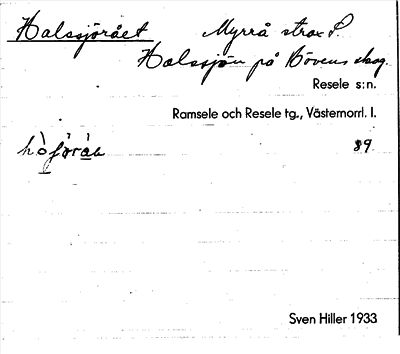 Halssjörået Myrrå strax S.
Halssjön på Bövens skog.
Resele s:n.
Ramsele och Resele tg., Västernorrl. l.
89
Sven Hiller 1933